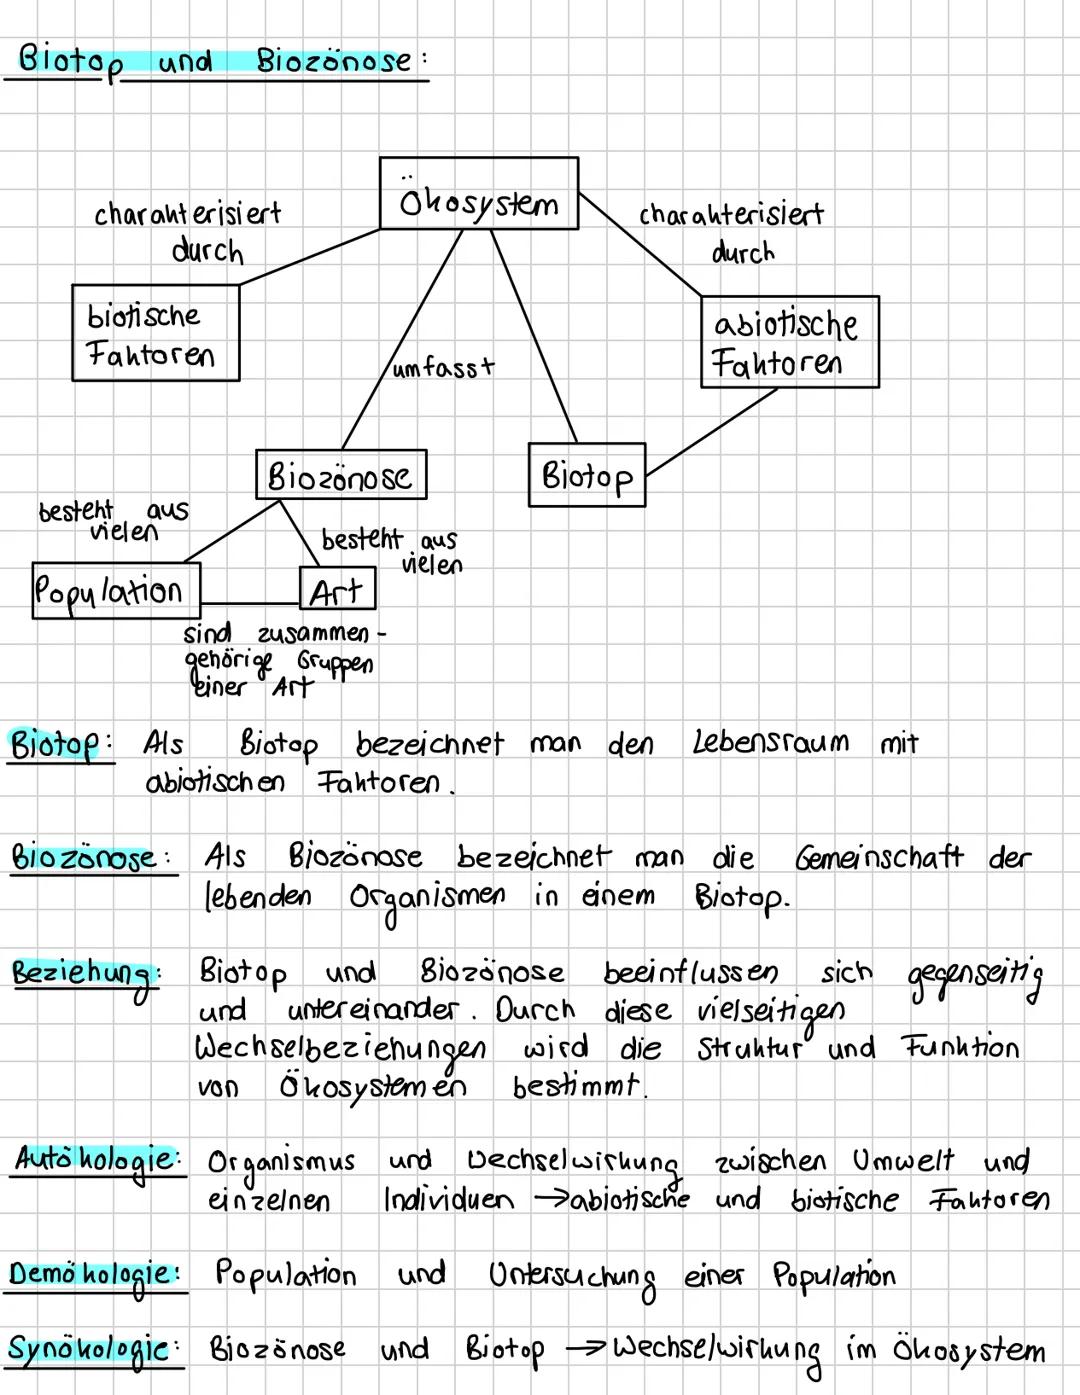 Biotop und Biozönose:
Ökosystem
charakterisiert
durch
charakterisiert
durch
biotische
Faktoren
abiotische
Faktoren
umfasst
Biozönose
Biotop
besteht aus
vielen
besteht aus
vielen
Population
Art
sind zusammen-
gehörige Gruppen
einer Art
Biotop: Als Biotop bezeichnet man den Lebensraum mit
abiotischen Faktoren.
Biozönose: Als Biozönose bezeichnet man die Gemeinschaft der
lebenden Organismen in einem Biotop.
Beziehung: Biotop und Biozönose beeinflussen sich gegenseitig
und untereinander. Durch diese vielseitigen
Wechselbeziehungen wird die Struktur und Funktion
von Ökosystemen bestimmt.
Autökologie: Organismus und Wechselwirkung zwischen Umwelt und
einzelnen Individuen → abiotische und biotische Faktoren
Demökologie: Population und Untersuchung einer Population
Synökologie: Biozönose und Biotop → Wechselwirkung im Ökosystem